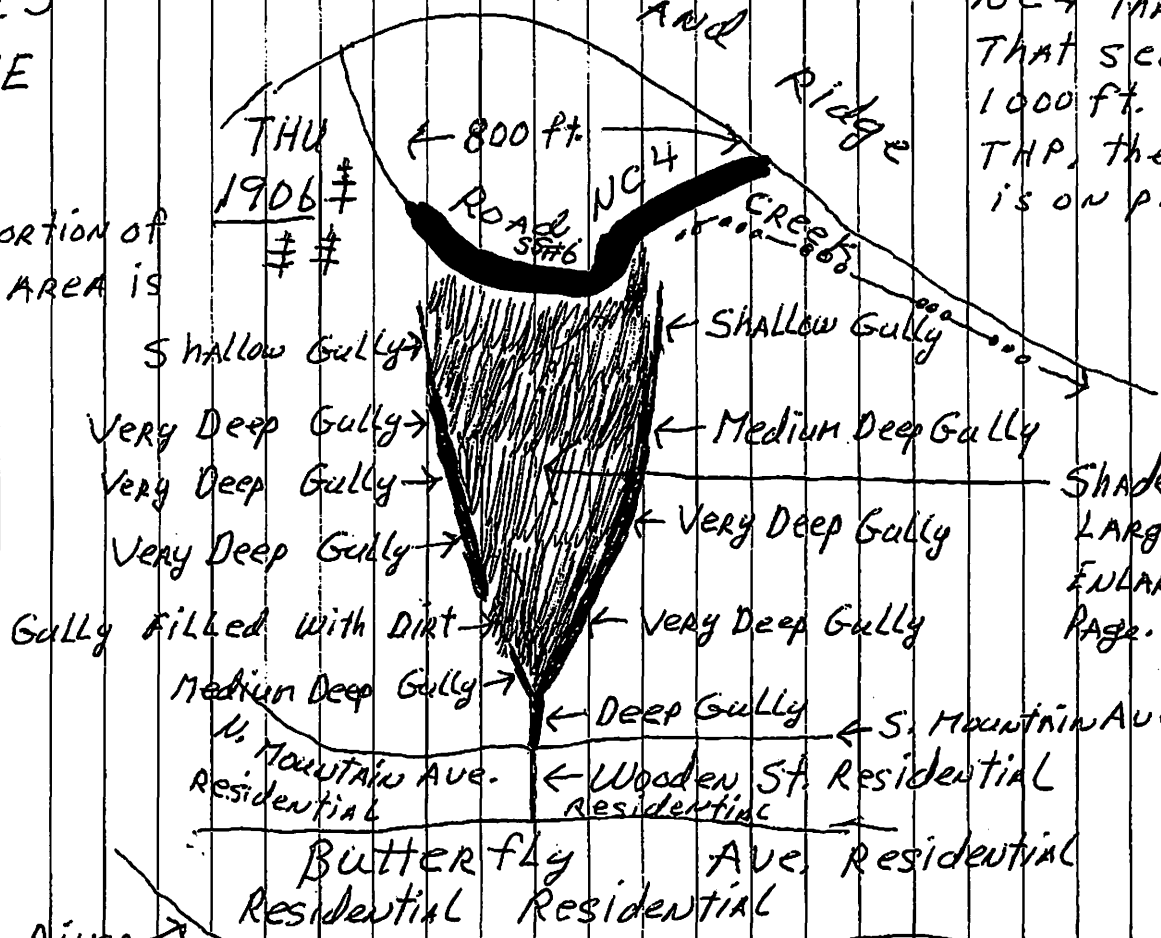 And
Ridge
That
1000 ft.
THP, the
is on
THU
1906 #
# #
← 800 ft. →
Road
NC4
Creek
ortion of
Area is
Shallow Gully →
← Shallow Gully
Very Deep Gully →
← Medium Deep Gully
Very Deep Gully →
← Very Deep Gully
Very Deep Gully →
Page.
Gully Filled With Dirt →
← Very Deep Gully
Medium Deep Gully →
← Deep Gully
← S. Mountain Av
N. Mountain Ave.
Residential
← Wooden St. Residential
Residential
Butterfly Ave. Residential
Residential Residential